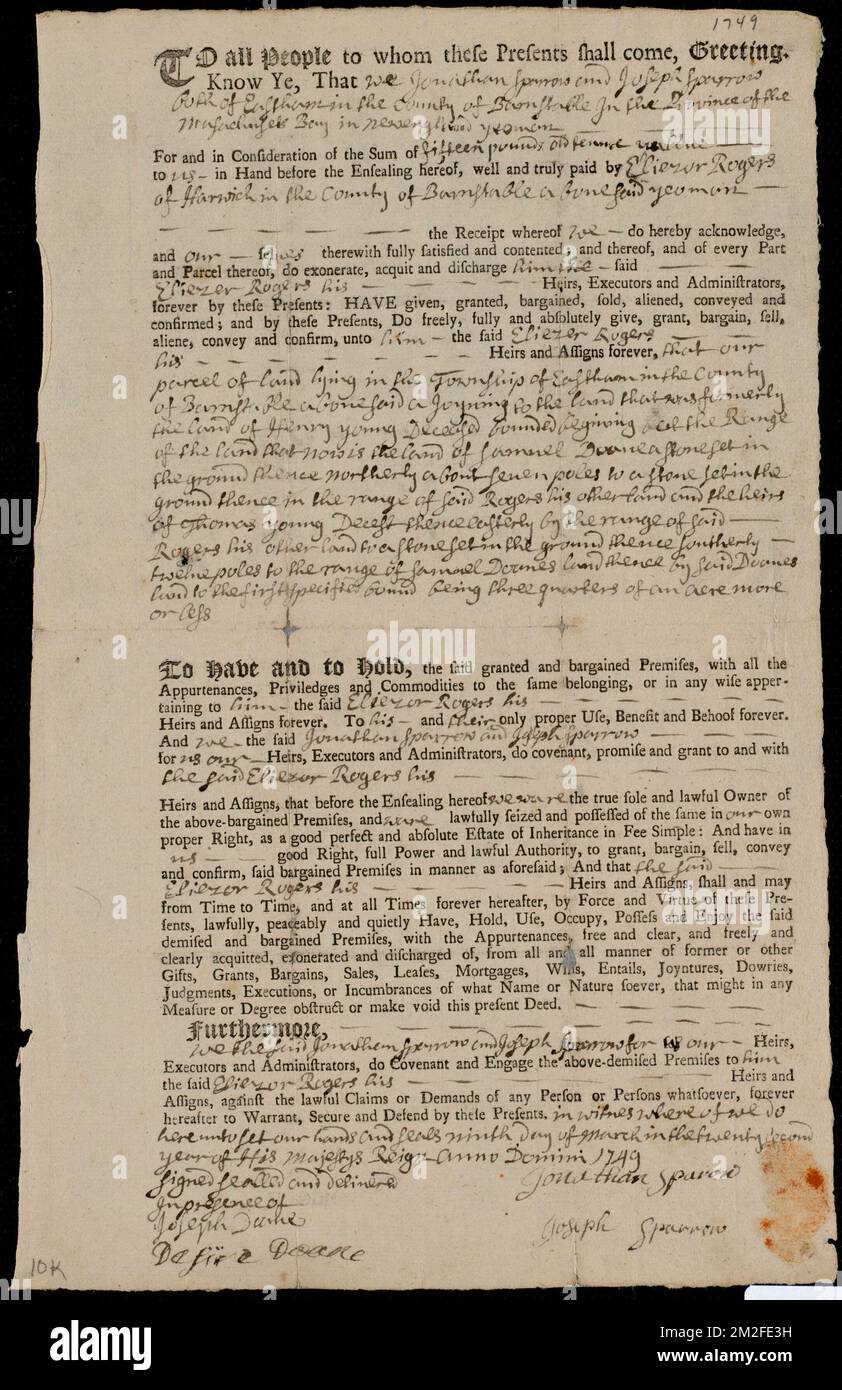 1749
TO all People to whom these Presents shall come, Greeting.
Know Ye, That we Jonathan Sparrow and Joseph Sparrow
both of Eastham in the County of Barnstable In the Province of the
Masachusets Bay in newengland yeomen
For and in Consideration of the Sum of fifteen pounds old tenner
to us in Hand before the Ensealing hereof, well and truly paid by Eliezor Rogers
of Harwich in the County of Barnstable abovesaid yeoman
the Receipt whereof we do hereby acknowledge,
and our selves therewith fully satisfied and contented; and thereof, and of every Part
and Parcel thereof, do exonerate, acquit and discharge him the said
Eliezer Rogers his Heirs, Executors and Administrators,
forever by these Presents: HAVE given, granted, bargained, sold, aliened, conveyed and
confirmed; and by these Presents, Do freely, fully and absolutely give, grant, bargain, sell,
aliene, convey and confirm, unto him the said Eliezer Rogers
his Heirs and Assigns forever, that our
parcel of land lying in the Township of Eastham in the County
of Barnstable abovesaid a Joyning to the land that was formerly
the land of Henry young Deceased bounded begining att the Range
of the land that now is the land of Samuel Doane a stone set in
the ground thence northerly about seven poles to a stone set in the
ground thence in the range of said Rogers his other land and the heirs
of Thomas young Decest thence easterly by the range of said
Rogers his other land to a stone set in the ground thence southerly
twelve poles to the range of Samuel Doanes land thence by said Doanes
land to the first specified bound being three quarters of an acre more
or less
To Have and to Hold, the said granted and bargained Premises, with all the
Appurtenances, Priviledges and Commodities to the same belonging, or in any wise apper-
taining to him the said Eliezor Rogers his
Heirs and Assigns forever. To his and their only proper Use, Benefit and Behoof forever.
And we the said Jonathan Sparrow and Joseph Sparrow
for us our Heirs, Executors and Administrators, do covenant, promise and grant to and with
the said Eliezor Rogers his
Heirs and Assigns, that before the Ensealing hereof we ware the true sole and lawful Owner of
the above-bargained Premises, and ware lawfully seized and possessed of the same in our own
proper Right, as a good perfect and absolute Estate of Inheritance in Fee Simple: And have in
us good Right, full Power and lawful Authority, to grant, bargain, sell, convey
and confirm, said bargained Premises in manner as aforesaid; And that the said
Eliezor Rogers his Heirs and Assigns, shall and may
from Time to Time, and at all Times forever hereafter, by Force and Virtue of these Pre-
sents, lawfully, peaceably and quietly Have, Hold, Use, Occupy, Possess and Enjoy the said
demised and bargained Premises, with the Appurtenances, free and clear, and freely and
clearly acquitted, exonerated and discharged of, from all and all manner of former or other
Gifts, Grants, Bargains, Sales, Leases, Mortgages, Wills, Entails, Joyntures, Dowries,
Judgments, Executions, or Incumbrances of what Name or Nature soever, that might in any
Measure or Degree obstruct or make void this present Deed.
Furthermore,
we the said Jonathan Sparrow and Joseph Sparrow for us our Heirs,
Executors and Administrators, do Covenant and Engage the above-demised Premises to him
the said Eliezor Rogers his Heirs and
Assigns, against the lawful Claims or Demands of any Person or Persons whatsoever, forever
hereafter to Warrant, Secure and Defend by these Presents. in witnes where of we do
here unto set our hands and seals ninth day of March in the twenty second
year of His Majestys Reign Anno Domini 1749
signed sealled and delivered
in presence of
Jonathan Sparow
Joseph Doane
Joseph Sparrow
Desire Doane
10K
alamy
Image ID: 2M2FE3H
www.alamy.com